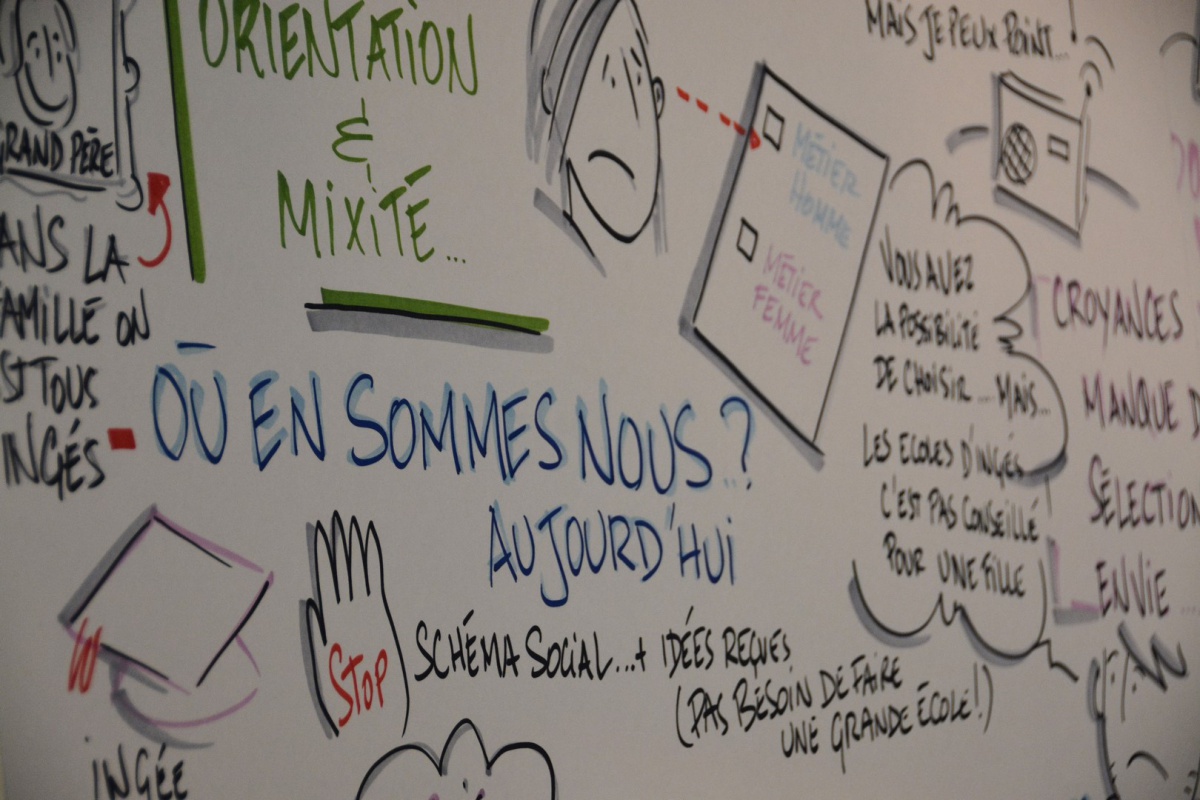 ORIENTATION
&
MIXITÉ...
GRAND PÈRE
ANS LA
FAMILLE ON
ST TOUS
INGÉS
MAIS JE PEUX POINT...
MÉTIER
HOMME
MÉTIER
FEMME
VOUS AVEZ
LA POSSIBILITÉ
DE CHOISIR...MAIS...
LES ECOLES D'INGÉS
C'EST PAS CONSEILLÉ
POUR UNE FILLE
CROYANCES
MANQUE D
SÉLECTION
ENVIE...
OÙ EN SOMMES NOUS..?
AUJOURD'HUI
STOP
SCHÉMA SOCIAL...+ IDÉES REÇUES
(PAS BESOIN DE FAIRE
UNE GRANDE ÉCOLE!)
INGÉE